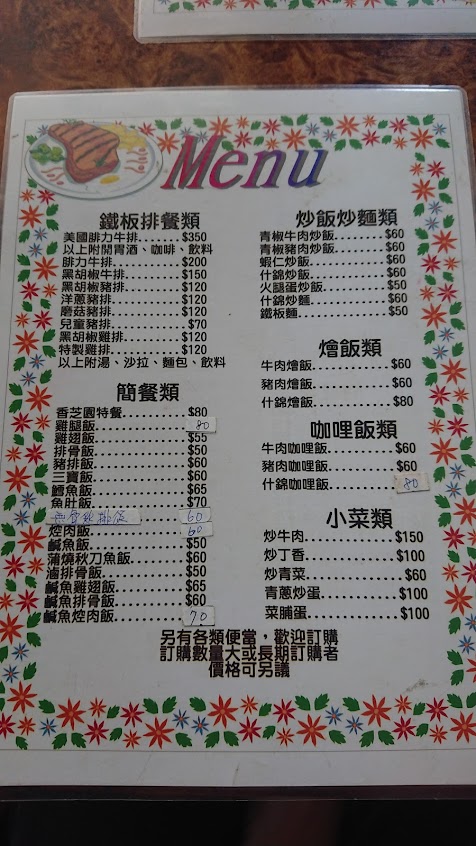 Menu
鐵板排餐類
美國腓力牛排........$350
以上附開胃酒、咖啡、飲料
腓力牛排............$200
黑胡椒牛排..........$150
黑胡椒豬排..........$120
洋蔥豬排............$120
磨菇豬排............$120
兒童豬排............$70
黑胡椒雞排..........$120
特製雞排............$120
以上附湯、沙拉、麵包、飲料
簡餐類
香芝園特餐..........$80
雞腿飯..............80
雞翅飯..............$55
排骨飯..............$50
豬排飯..............$60
三寶飯..............$60
鱈魚飯..............$65
魚肚飯..............$70
60
焢肉飯..............60
鹹魚飯..............$50
蒲燒秋刀魚飯........$60
滷排骨飯............$50
鹹魚雞翅飯..........$65
鹹魚排骨飯..........$60
鹹魚焢肉飯..........70
炒飯炒麵類
青椒牛肉炒飯........$60
青椒豬肉炒飯........$60
蝦仁炒飯............$60
什錦炒飯............$60
火腿蛋炒飯..........$50
什錦炒麵............$60
鐵板麵..............$50
燴飯類
牛肉燴飯............$60
豬肉燴飯............$60
什錦燴飯............$80
咖哩飯類
牛肉咖哩飯..........$60
豬肉咖哩飯..........$60
什錦咖哩飯..........80
小菜類
炒牛肉..............$150
炒丁香..............$100
炒青菜..............$60
青蔥炒蛋............$100
菜脯蛋..............$100
另有各類便當，歡迎訂購
訂購數量大或長期訂購者
價格可另議